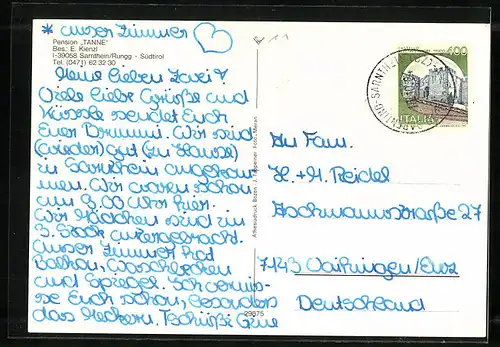 * unser Zimmer
Pension „TANNE"
Bes.: E. Kienzl
I-39058 Sarnthein/Rungg - Südtirol
Tel. (0471) 62 32 30
Meine lieben Zwei!
Viele liebe Grüße und
Küsse sendet Euch
Euer Brummi. Wir sind
(wieder) gut (zu Hause)
in Sarnthein angekom-
men. Wir waren schon
um 8.00 Uhr hier.
Wir Mädchen sind im
3. Stock untergebracht.
Unser Zimmer hat
Balkon, Waschbecken
und Spiegel. Ich vermis-
se Euch schon, besonders
das Meckern. Tschüße Eure
Athesiadruck Bozen - J. Tappeiner Foto, Meran
29875
600
ITALIA
An Fam.
H.+H. Reidel
Aschmannstraße 27
7143 Vaihingen/Enz
Deutschland